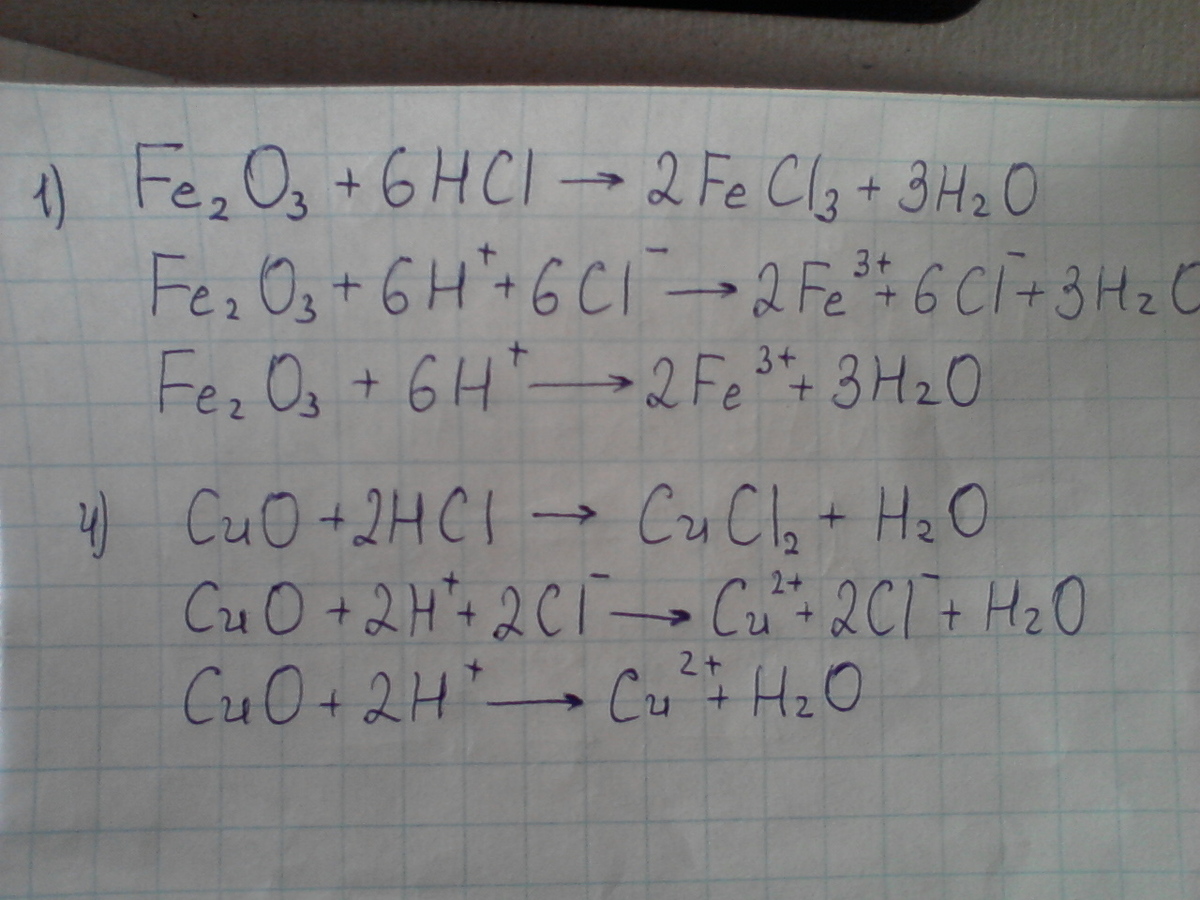 1) Fe₂O₃ + 6HCl → 2FeCl₃ + 3H₂O
Fe₂O₃ + 6H⁺ + 6Cl⁻ → 2Fe³⁺ + 6Cl⁻ + 3H₂O
Fe₂O₃ + 6H⁺ → 2Fe³⁺ + 3H₂O
4) CuO + 2HCl → CuCl₂ + H₂O
CuO + 2H⁺ + 2Cl⁻ → Cu²⁺ + 2Cl⁻ + H₂O
CuO + 2H⁺ → Cu²⁺ + H₂O